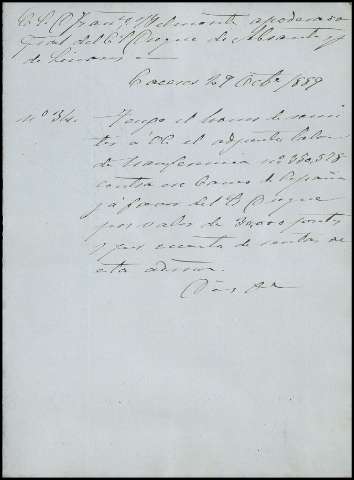 Sr. Dn. Fran.co Belmonte apoderado
Gral del E. S. Duque de Abrantes y
de Linares
Caceres 29 Octbe 1889
Nº 34. Tengo el honor de remi-
tir á V. el adjunto talon
de transferencia nº 360,578
contra ese Banco de España
y á favor del S. Duque
por valor de 30,000 pesetas
y por cuenta de rentas de
esta admon.
Dios &a